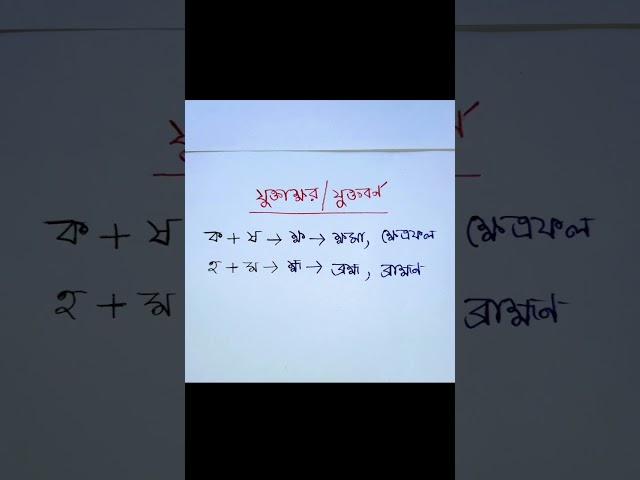 যুক্তাক্ষর/যুক্তবর্ণ
ক + ষ → ক্ষ → ক্ষমা, ক্ষেত্রফল
হ + ম → হ্ম → ব্রহ্ম, ব্রাহ্মণ